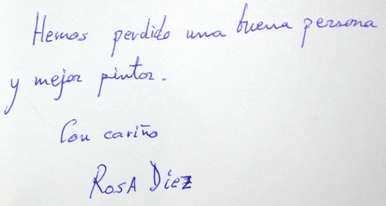 Hemos perdido una buena persona
y mejor pintor.
Con cariño
ROSA Díez